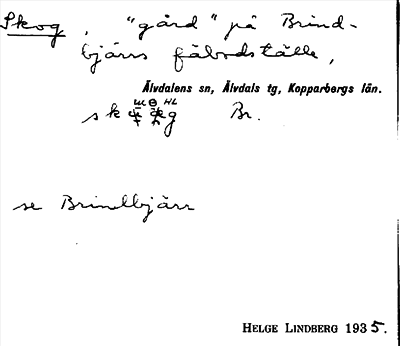 Skog, "gård" på Brind-
bjärs fäbodställe,
Älvdalens sn, Älvdals tg, Kopparbergs län.
Br.
se Brindbjärr
HELGE LINDBERG 1935.